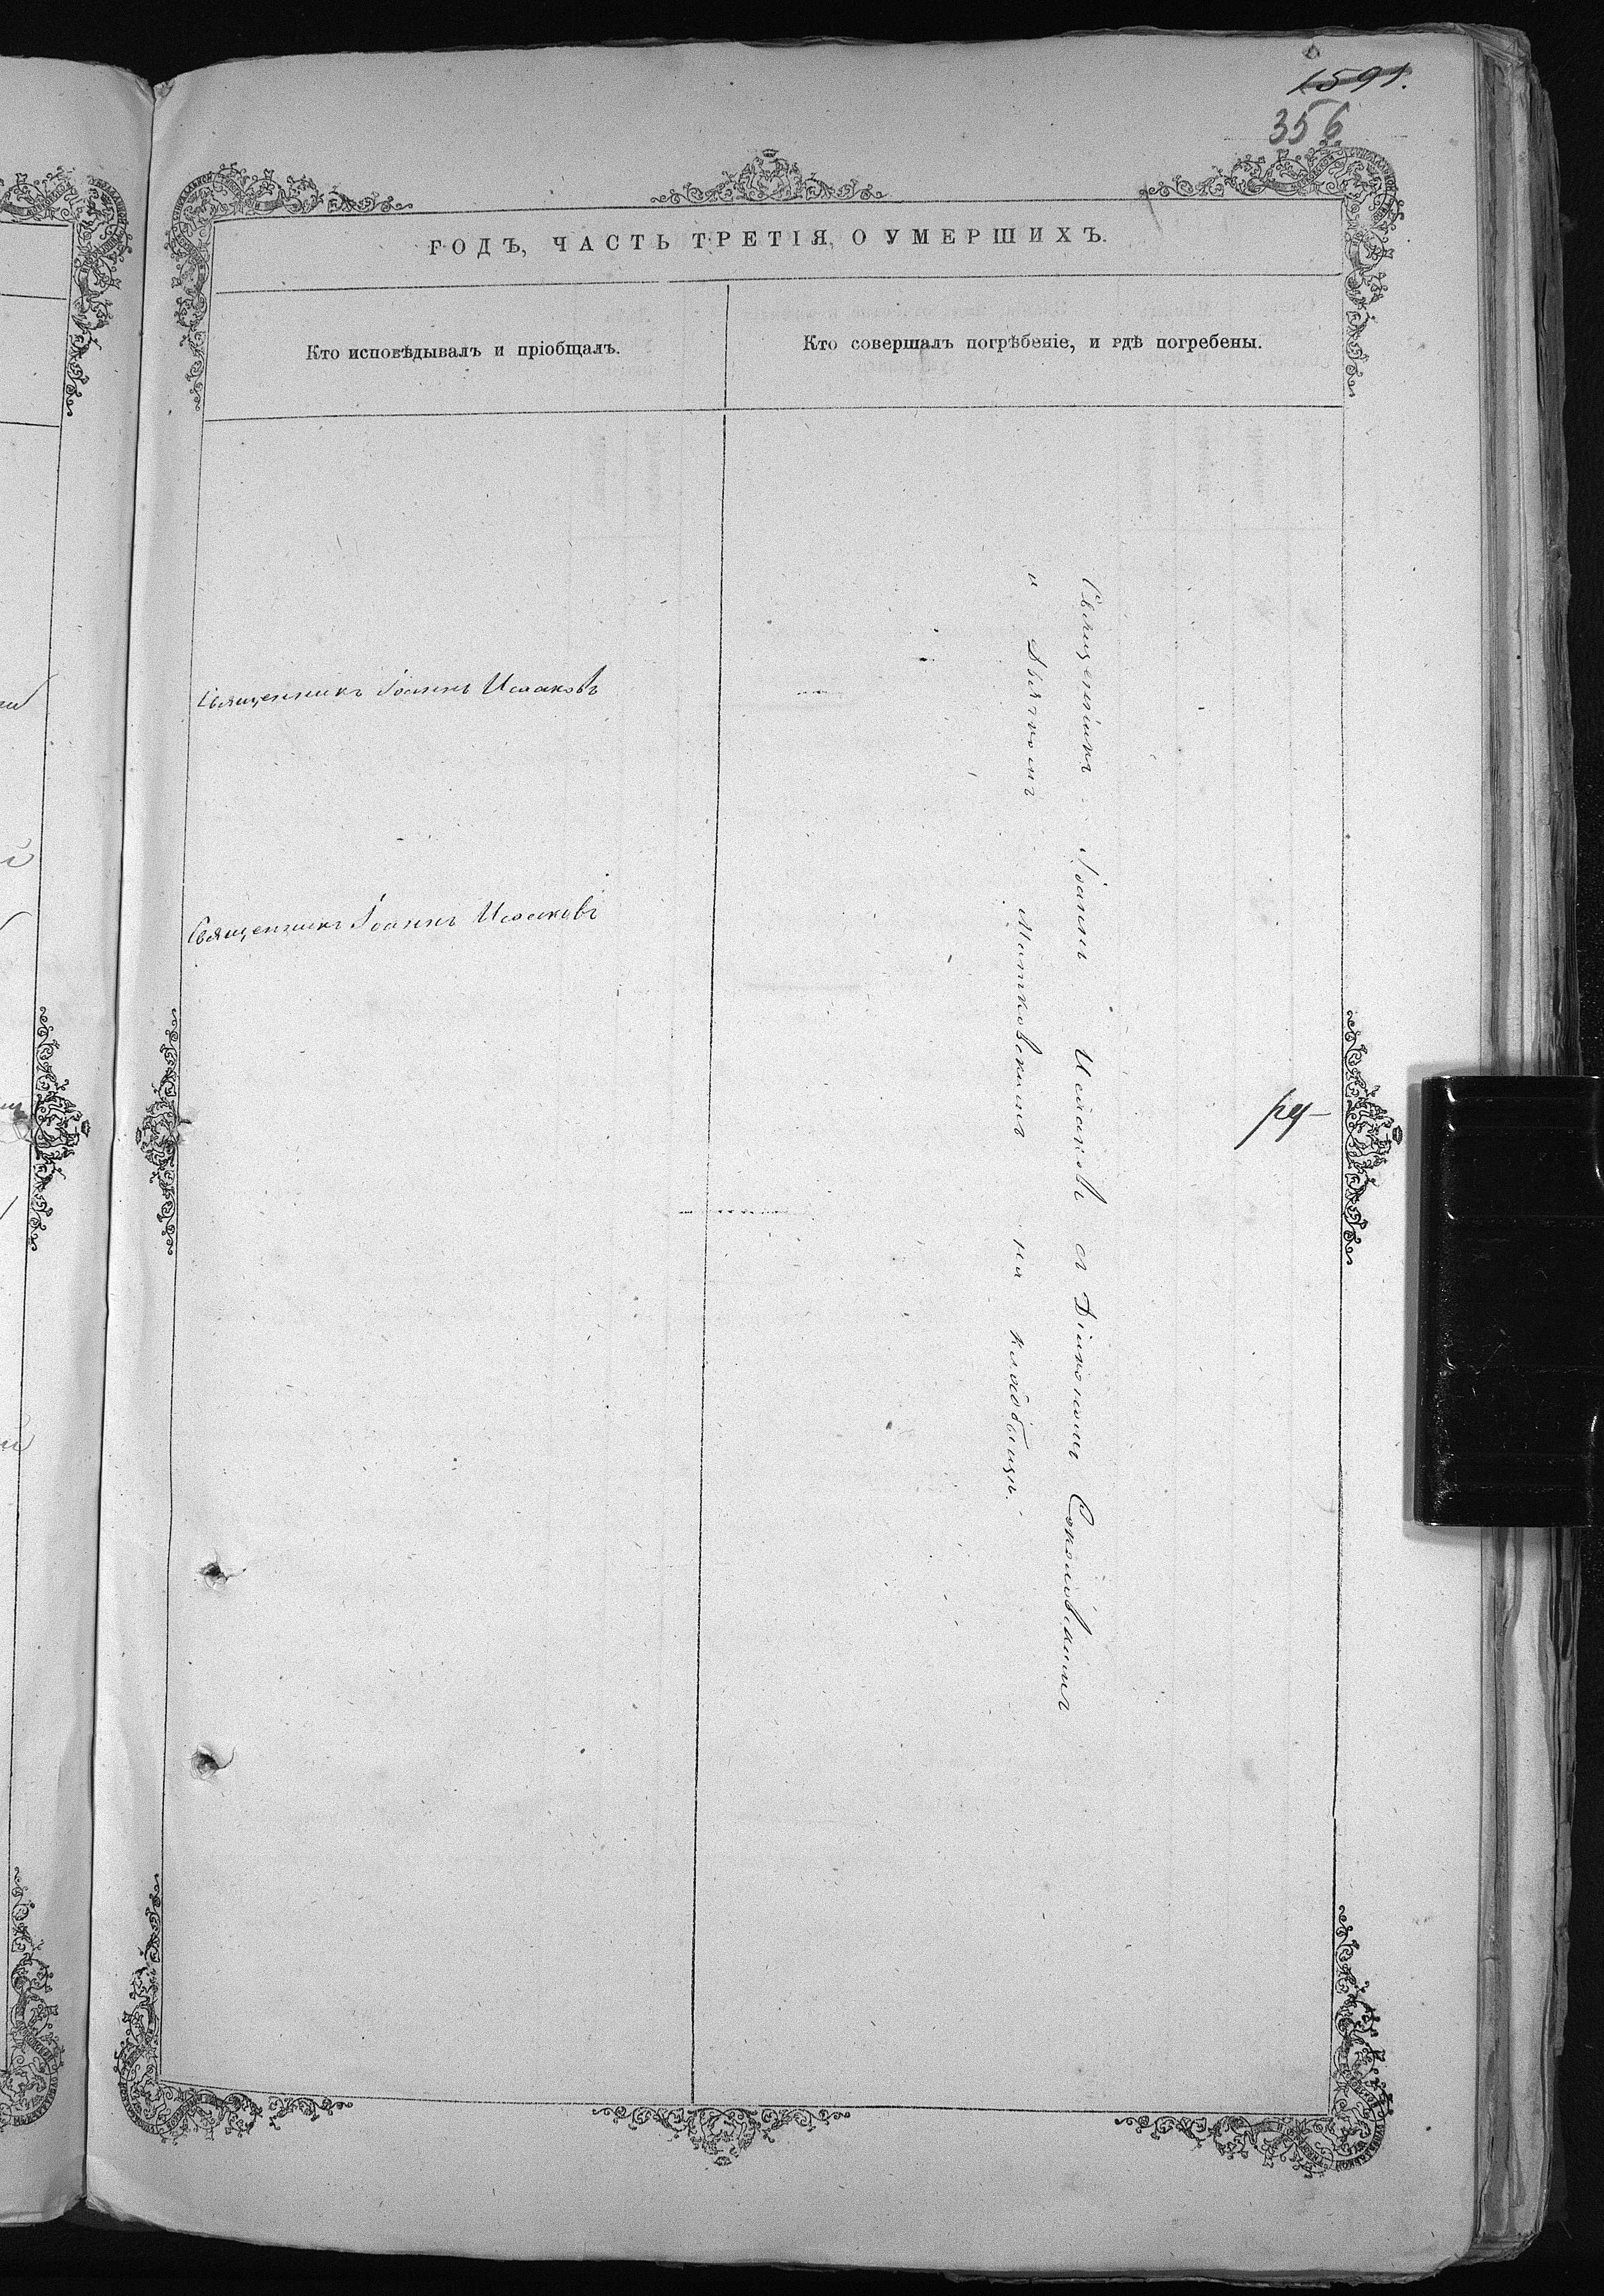 1591.
356
ГОДЪ, ЧАСТЬ ТРЕТІЯ, О УМЕРШИХЪ.
Кто исповѣдывалъ и пріобщалъ.
Кто совершалъ погрѣбеніе, и гдѣ погребены.
Священникъ Іоаннъ Исааковъ
Священникъ Іоаннъ Исааковъ
Священникъ Іоаннъ Исааковъ съ Діакономъ Соколовскимъ
и Дьячкомъ Митковскимъ на кладбищѣ.